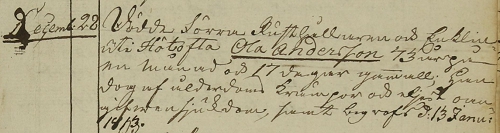 Decemb: 28 Födde Förra Rusthållaren och Enkling
uti Högöfta Ola Andersson 73 år
en månad och 17 dagar gammall; Han
dog af ålderdoms krämpor och
sjukdom, samt begrofs d: 13 Janu:
1813.